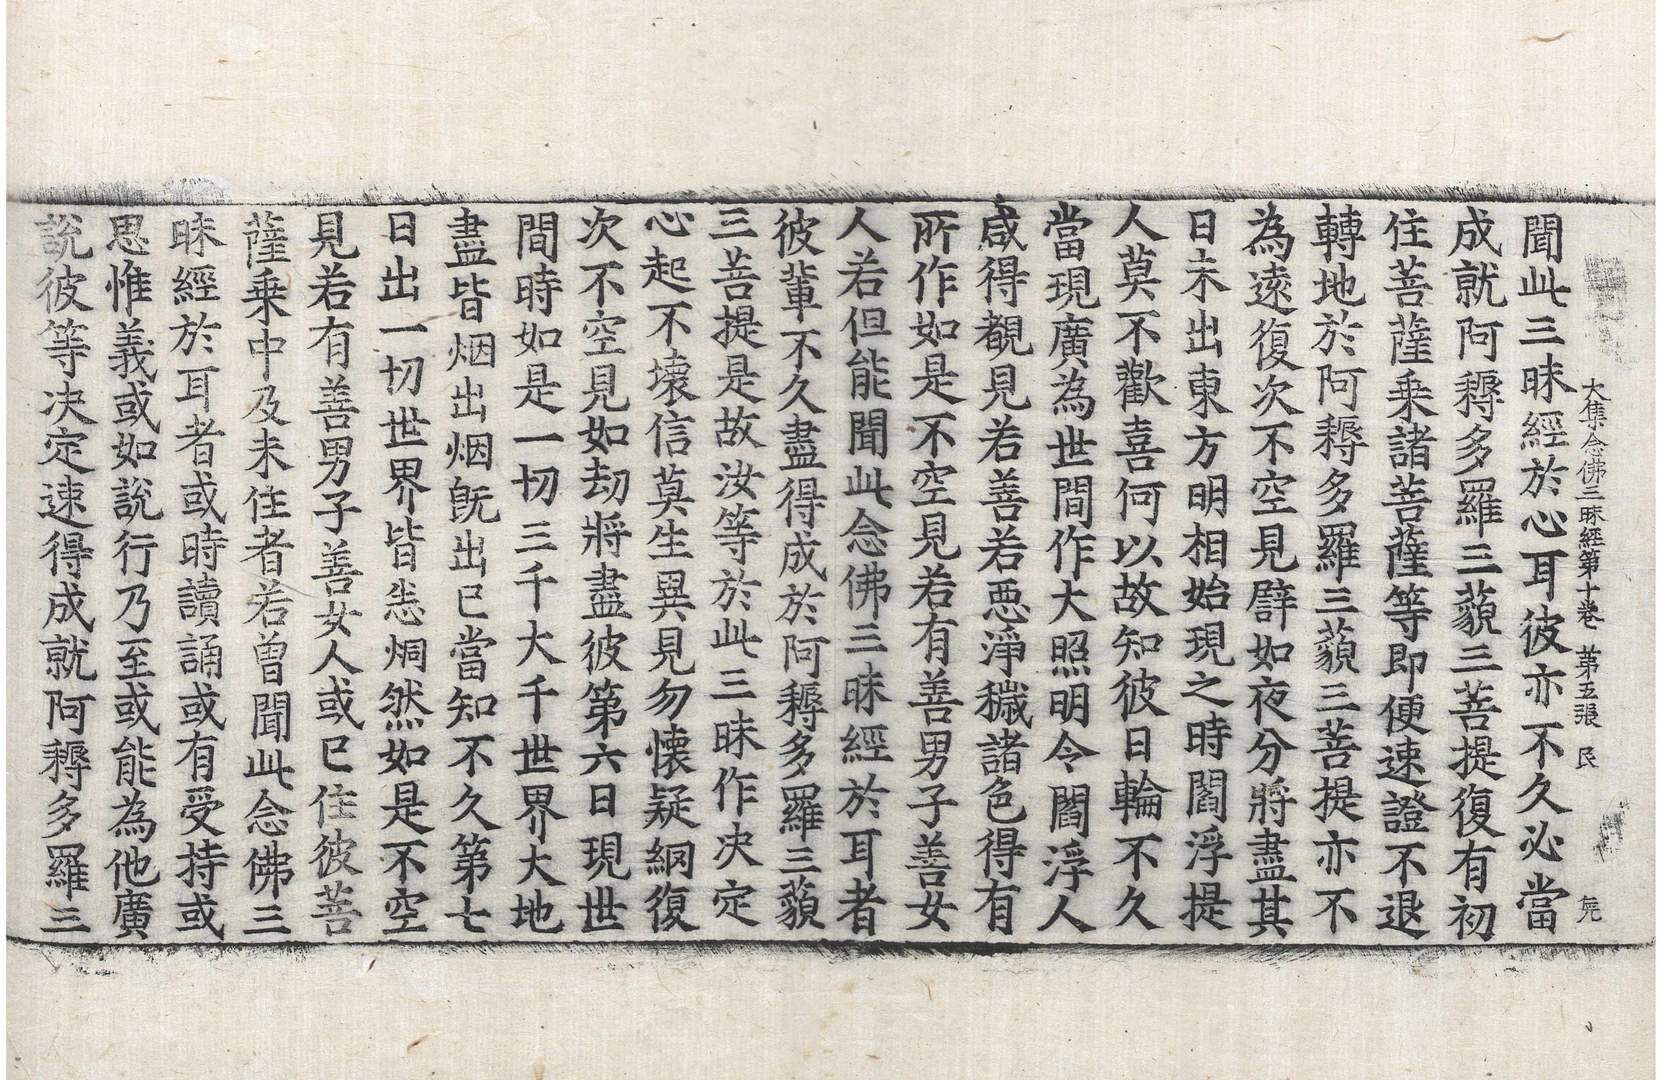 大集念佛三昧經第十卷 第五張 民
聞此三昧經於心耳彼亦不不久必當
成就阿耨多羅三藐三菩提復有初
住菩薩乘諸菩薩等即便速證不退
轉地於阿耨多羅三藐三菩提亦不
為遠復次不空見譬如夜分將盡其
日未出東方明相始現之時閻浮提
人莫不歡喜何以故知彼日輪不久
當現廣為世間作大照明令閻浮人
咸得覩見若善若惡淨穢諸色得有
所作如是不空見若有善男子善女
人若但能聞此念佛三昧經於耳者
彼輩不久盡得成於阿耨多羅三藐
三菩提是故汝等於此三昧作決定
心起不壞信莫生異見勿懷疑網復
次不空見如劫將盡彼第六日現世
間時如是一切三千大千世界大地
盡皆烟出烟旣出已當知不久第七
日出一切世界皆悉烔然如是不空
見若有善男子善女人或已住彼菩
薩乘中及未住者若曾聞此念佛三
昧經於耳者或時讀誦或有受持或
思惟義或如說行乃至或能為他廣
說彼等決定速得成就阿耨多羅三